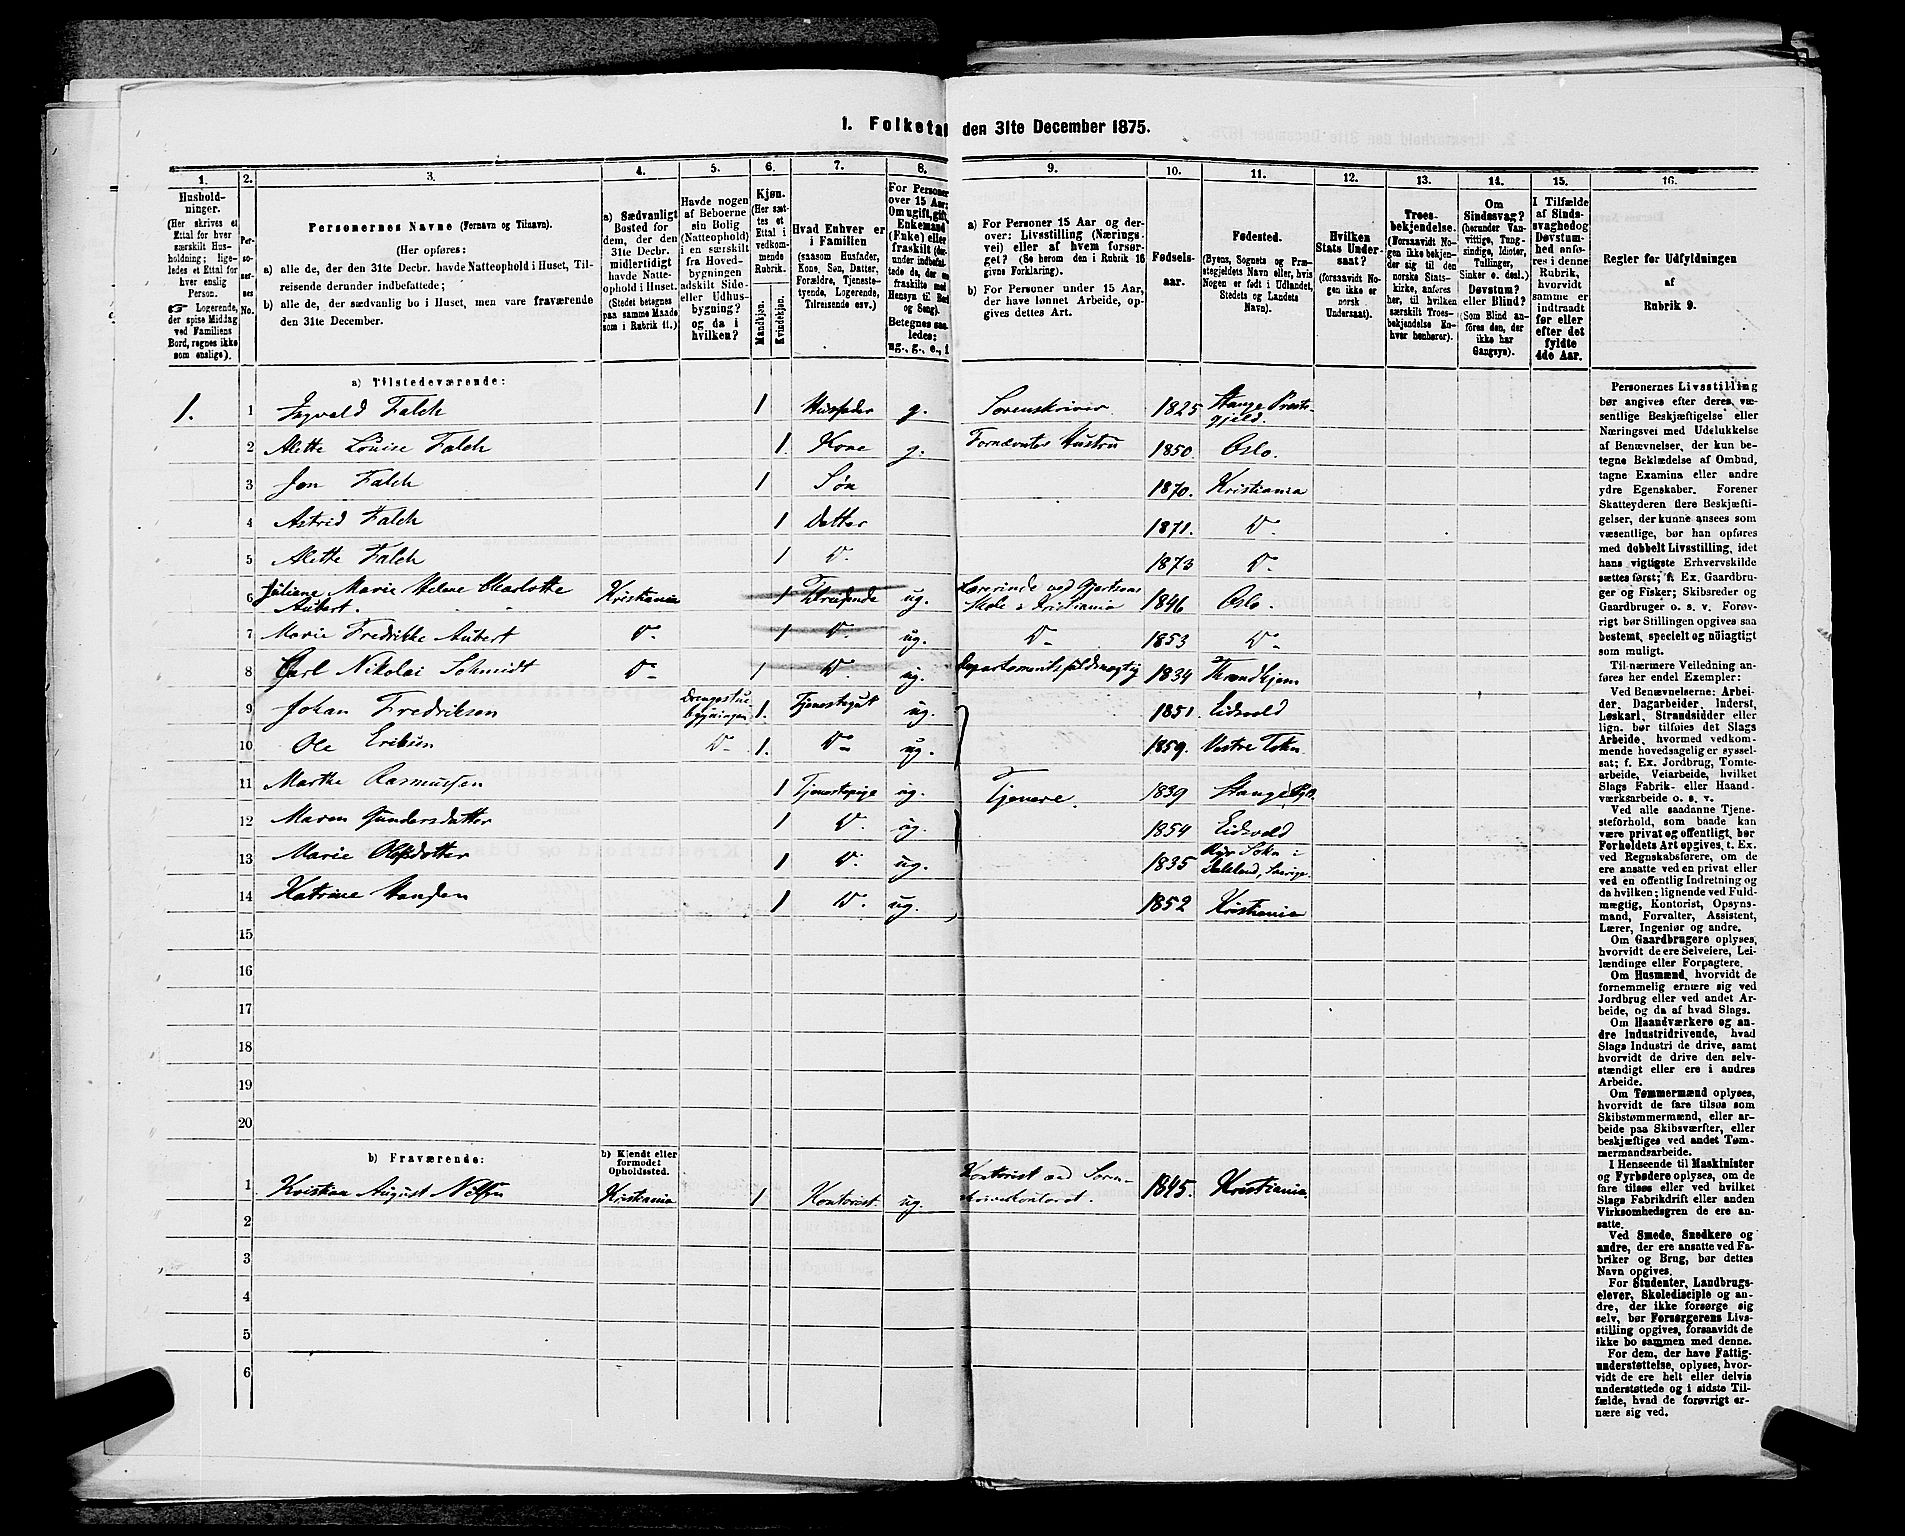 1. Folketal den 31te December 1875.
1.
2.
3.
4.
5.
6.
7.
8.
9.
10.
11.
12.
13.
14.
15.
16.
Hushold-
ninger.
(Her skrives et
Ettal for hver
særskilt Hus-
holdning; lige-
ledes et Ettal for
hver enslig
Person.
☞ Logerende,
der spise Middag
ved Familiens
Bord, regnes ikke
som enslige).
Per-
so-
ner-
nes
No.
Personernes Navne (Fornavn og Tilnavn).
(Her opføres:
a) alle de, der den 31te Decbr. havde Natteophold i Huset, Til-
reisende derunder indbefattede;
b) alle de, der sædvanlig bo i Huset, men vare fraværende
den 31te December.
a) Sædvanligt
Bosted for
dem, der den
31te Decbr.
midlertidigt
havde Natte-
ophold i Huset.
(Stedet betegnes
paa samme Maade
som i Rubrik 11.)
Havde nogen
af Beboerne
sin Bolig
(Natteophold)
i en særskilt
fra Hoved-
bygningen
adskilt Side-
eller Udhus-
bygning?
og da i
hvilken?
Kjøn.
(Her sæt-
tes et
Ettal i
vedkom-
mende
Rubrik.
Mandkjøn.
Kvindekjøn.
Hvad Enhver er
i Familien
(saasom Husfader,
Kone, Søn, Datter,
Forældre, Tjeneste-
tyende, Logerende,
Tilreisende osv.)
For Personer
over 15 Aar:
Om ugift, gift,
Enkemand
(Enke) eller
fraskilt
Betegnes saa-
ledes:
ug., g., e., f
a) For Personer 15 Aar og der-
over: Livsstilling (Nærings-
vei) eller af hvem forsør-
get? (Se herom den i Rubrik 16
givne Forklaring).
b) For Personer under 15 Aar,
der have lønnet Arbeide, op-
gives dettes Art.
Fødsels-
aar.
Fødested.
(Byens, Sognets og Præ-
stegjeldets Navn eller, hvis
Nogen er født i Udlandet,
Stedets og Landets
Navn).
Hvilken
Stats Under-
saat?
(forsaavidt No-
gen ikke er
norsk
Undersaat).
Troes-
bekjendelse.
(Forsaavidt No-
gen ikke bekjen-
der sig til den
norske Stats-
kirke, anføres
her, til hvilken
særskilt Troes-
bekjendelse En-
hver henhører).
Om
Sindssvag?
(herunder Van-
vittige, Tung-
sindige, Idioter,
Tullinger,
Sinker o. desl.)
Døvstum?
eller Blind?
(Som Blind an-
føres den, der
ikke har
Gangsyn).
I Tilfælde
af Sinds-
svaghed og
Døvstum-
hed anfø-
res i denne
Rubrik,
hvorvidt
samme er
indtraadt
før eller
efter det
fyldte
4de Aar.
Regler for Udfyldningen
af
Rubrik 9.
a) Tilstedeværende:
1. 1 Ingvald Falch 1 Husfader g. Sorenskriver 1825 Stange Præste-
gjeld.
2 Alette Louise Falch 1. Kone g. Fornævntes Hustru 1850. Oslo.
3 Jon Falch 1 Søn 1870. Kristiania
4 Astrid Falch 1 Datter 1871. D°
5 Alette Falch 1 D°. 1873 D°
6 Juliane Marie Helene Charlotte
Aubert. Kristiania 1 Tilreisende ug. Lærerinde ved Gjertsens
Skole i Kristiania 1846 Oslo.
7 Marie Fredrikke Aubert D° 1 D°. ug. D° 1853 D°
8 Carl Nikolai Schmidt D° 1 D°. ug. Departementsfuldmægtig 1834 Trondhjem
9 Johan Fredriksen Drengestue-
bygningen 1. Tjenestegut ug. 1851. Eidsvold
10 Ole Eriksen D° 1. D° ug. 1859. Vestre Toten
11 Marthe Rasmussen 1 Tjenestepige ug. Tjenere. 1839 Stange Pgld.
12 Maren Gundersdatter 1 D°. ug. 1854 Eidsvold
13 Marie Olofsdotter 1 D°. ug. 1835 Sokn i
Dalsland, Sverige.
14 Katrine Hansen 1 D°. ug. 1852 Kristiania
15
16
17
18
19
20
b) Fraværende:
b) Kjendt eller
formodet
Opholdssted.
1 Kristian August Nilsen Kristiania 1 Kontorist. ug. Kontorist ved Soren-
skriverkontoret. 1845. Kristiania.
2
3
4
5
6
Personernes Livsstilling
bør angives efter deres væ-
sentlige Beskjæftigelse eller
Næringsvei med Udelukkelse
af Benævnelser, der kun be-
tegne Beklædelse af Ombud,
tagne Examina eller andre
ydre Egenskaber. Forener
Skatteyderen flere Beskjæfti-
gelser, der kunne ansees som
væsentlige, bør han opføres
med dobbelt Livsstilling, idet
hans vigtigste Erhvervskilde
sættes først; f. Ex. Gaardbru-
ger og Fisker; Skibsreder og
Gaardbruger o. s. v. Forøv-
rigt bør Stillingen opgives saa
bestemt, specielt og nöiagtigt
som muligt.
Til nærmere Veiledning an-
føres her endel Exempler:
Ved Benævnelserne: Arbei-
der, Dagarbeider, Inderst,
Løskarl, Strandsidder eller
lign. bør tilføies det Slags
Arbeide, hvormed vedkom-
mende hovedsagelig er syssel-
sat; f. Ex. Jordbrug, Tomte-
arbeide, Veiarbeide, hvilket
Slags Fabrik- eller Haand-
værksarbeide o. s. v.
Ved alle saadanne Tjene-
steforhold, som baade kan
være privat og offentligt, bør
Forholdets Art opgives, t. Ex.
ved Regnskabsførere, om de
ere ansatte ved en privat eller
ved en offentlig Indretning og
da hvilken; lignende ved Fuld-
mægtig, Kontorist, Opsyns-
mand, Forvalter, Assistent,
Lærer, Ingeniør og andre.
Om Gaardbrugere oplyses,
hvorvidt de ere Selveiere, Lei-
lændinge eller Forpagtere.
Om Husmænd, hvorvidt de
fornemmelig ernære sig ved
Jordbrug eller ved andet Ar-
beide, og da af hvad Slags.
Om Haandværkere og an-
dre Industridrivende, hvad
Slags Industri de drive, samt
hvorvidt de drive den selv-
stændigt eller ere i andres
Arbeide.
Om Tømmermænd oplyses,
hvorvidt de fare tilsøs som
Skibstømmermænd, eller ar-
beide paa Skibsværfter, eller
beskjæftiges ved andet Tøm-
mermandsarbeide.
I Henseende til Maskinister
og Fyrbødere oplyses, om de
fare tilsøs eller ved hvilket
Slags Fabrikdrift eller anden
Virksomhedsgren de ere an-
satte.
Ved Smede, Snedkere og
andre, der ere ansatte ved Fa-
briker og Brug, bør dettes
Navn opgives.
For Studenter, Landbrugs-
elever, Skoledisciple og an-
dre, der ikke forsørge sig
selv, bør Forsørgerens Livs-
stilling opgives, forsaavidt de
ikke bo sammen med denne.
For dem, der have Fattig-
understøttelse, oplyses, hvor-
vidt de ere helt eller delvis
understøttede og i sidste Til-
fælde, hvad de forøvrigt er-
nære sig ved.